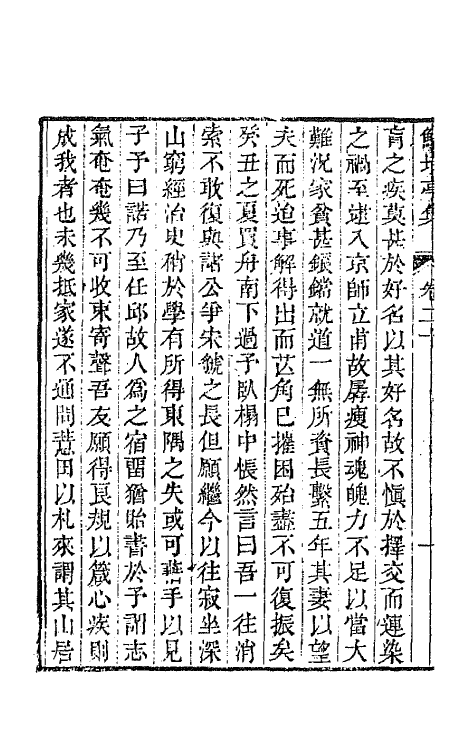 鮚埼亭集　卷二十　一
肓之疾莫甚於好名以其好名故不愼於擇交而連染
之禍至逮入京師立甫故孱瘦神魂魄力不足以當大
難況家貧甚鋃鐺就道一無所資長繫五年其妻以望
夫而死迨事解得出而芒角已摧困殆盡不可復振矣
癸丑之夏買舟南下過予臥榻中悵然言曰吾一往消
索不敢復與諸公爭宋虢之長但願繼今以往寂坐深
山窮經治史稍於學有所得東隅之失或可藉手以見
子予曰諾乃至任邱故人爲之宿畱猶貽書於予謂志
氣奄奄幾不可收東寄聲吾友願得良規以箴心疾則
成我者也未幾抵家遂不通問慧田以札來謂其山居